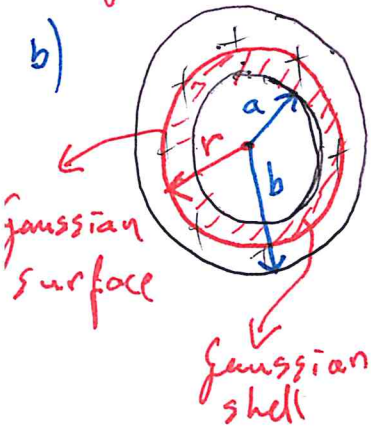 b)
a
r
b
Gaussian
surface
Gaussian
shell